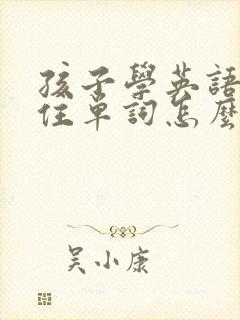 孩子學英語
住單詞怎麼
吴小康